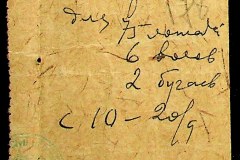 для
75 лошадей
6 волов
2 бугаев
с 10 – 20/9